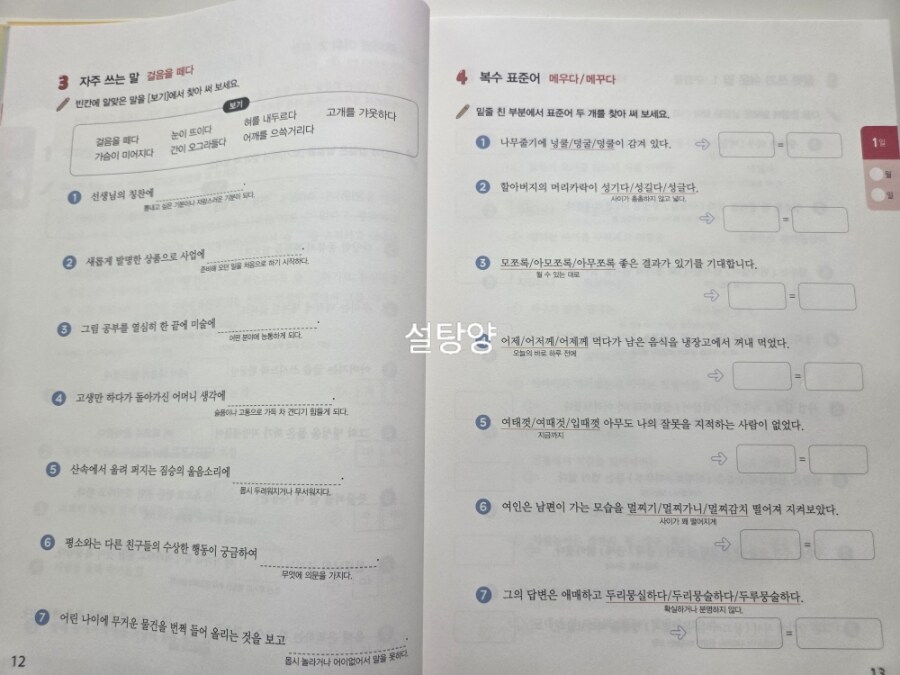 3 자주 쓰는 말 걸음을 떼다
빈칸에 알맞은 말을 [보기]에서 찾아 써 보세요.
보기
걸음을 떼다 눈이 뜨이다 혀를 내두르다 고개를 갸웃하다
가슴이 미어지다 간이 오그라들다 어깨를 으쓱거리다
1 선생님의 칭찬에 .
뽐내고 싶은 기분이나 자랑스러운 기분이 되다.
2 새롭게 발명한 상품으로 사업에 .
준비해 오던 일을 처음으로 하기 시작하다.
3 그림 공부를 열심히 한 끝에 미술에 .
어떤 분야에 능통하게 되다.
4 고생만 하다가 돌아가신 어머니 생각에 .
슬픔이나 고통으로 가득 차 견디기 힘들게 되다.
5 산속에서 울려 퍼지는 짐승의 울음소리에 .
몹시 두려워지거나 무서워지다.
6 평소와는 다른 친구들의 수상한 행동이 궁금하여 .
무엇에 의문을 가지다.
7 어린 나이에 무거운 물건을 번쩍 들어 올리는 것을 보고 .
몹시 놀라거나 어이없어서 말을 못하다.
12
4 복수 표준어 메우다/메꾸다
밑줄 친 부분에서 표준어 두 개를 찾아 써 보세요.
1일
월
일
1 나무줄기에 넝쿨/덩굴/덩쿨이 감겨 있다.
=
2 할아버지의 머리카락이 성기다/성길다/성글다.
사이가 촘촘하지 않고 넓다.
=
3 모쪼록/아모쪼록/아무쪼록 좋은 결과가 있기를 기대합니다.
될 수 있는 대로
=
설탕양
어제/어저께/어제께 먹다가 남은 음식을 냉장고에서 꺼내 먹었다.
오늘의 바로 하루 전에
=
5 여태껏/여때껏/입때껏 아무도 나의 잘못을 지적하는 사람이 없었다.
지금까지
=
6 여인은 남편이 가는 모습을 멀찌기/멀찌가니/멀찌감치 떨어져 지켜보았다.
사이가 꽤 떨어지게
=
7 그의 답변은 애매하고 두리뭉실하다/두리뭉술하다/두루뭉술하다.
확실하거나 분명하지 않다.
=
13